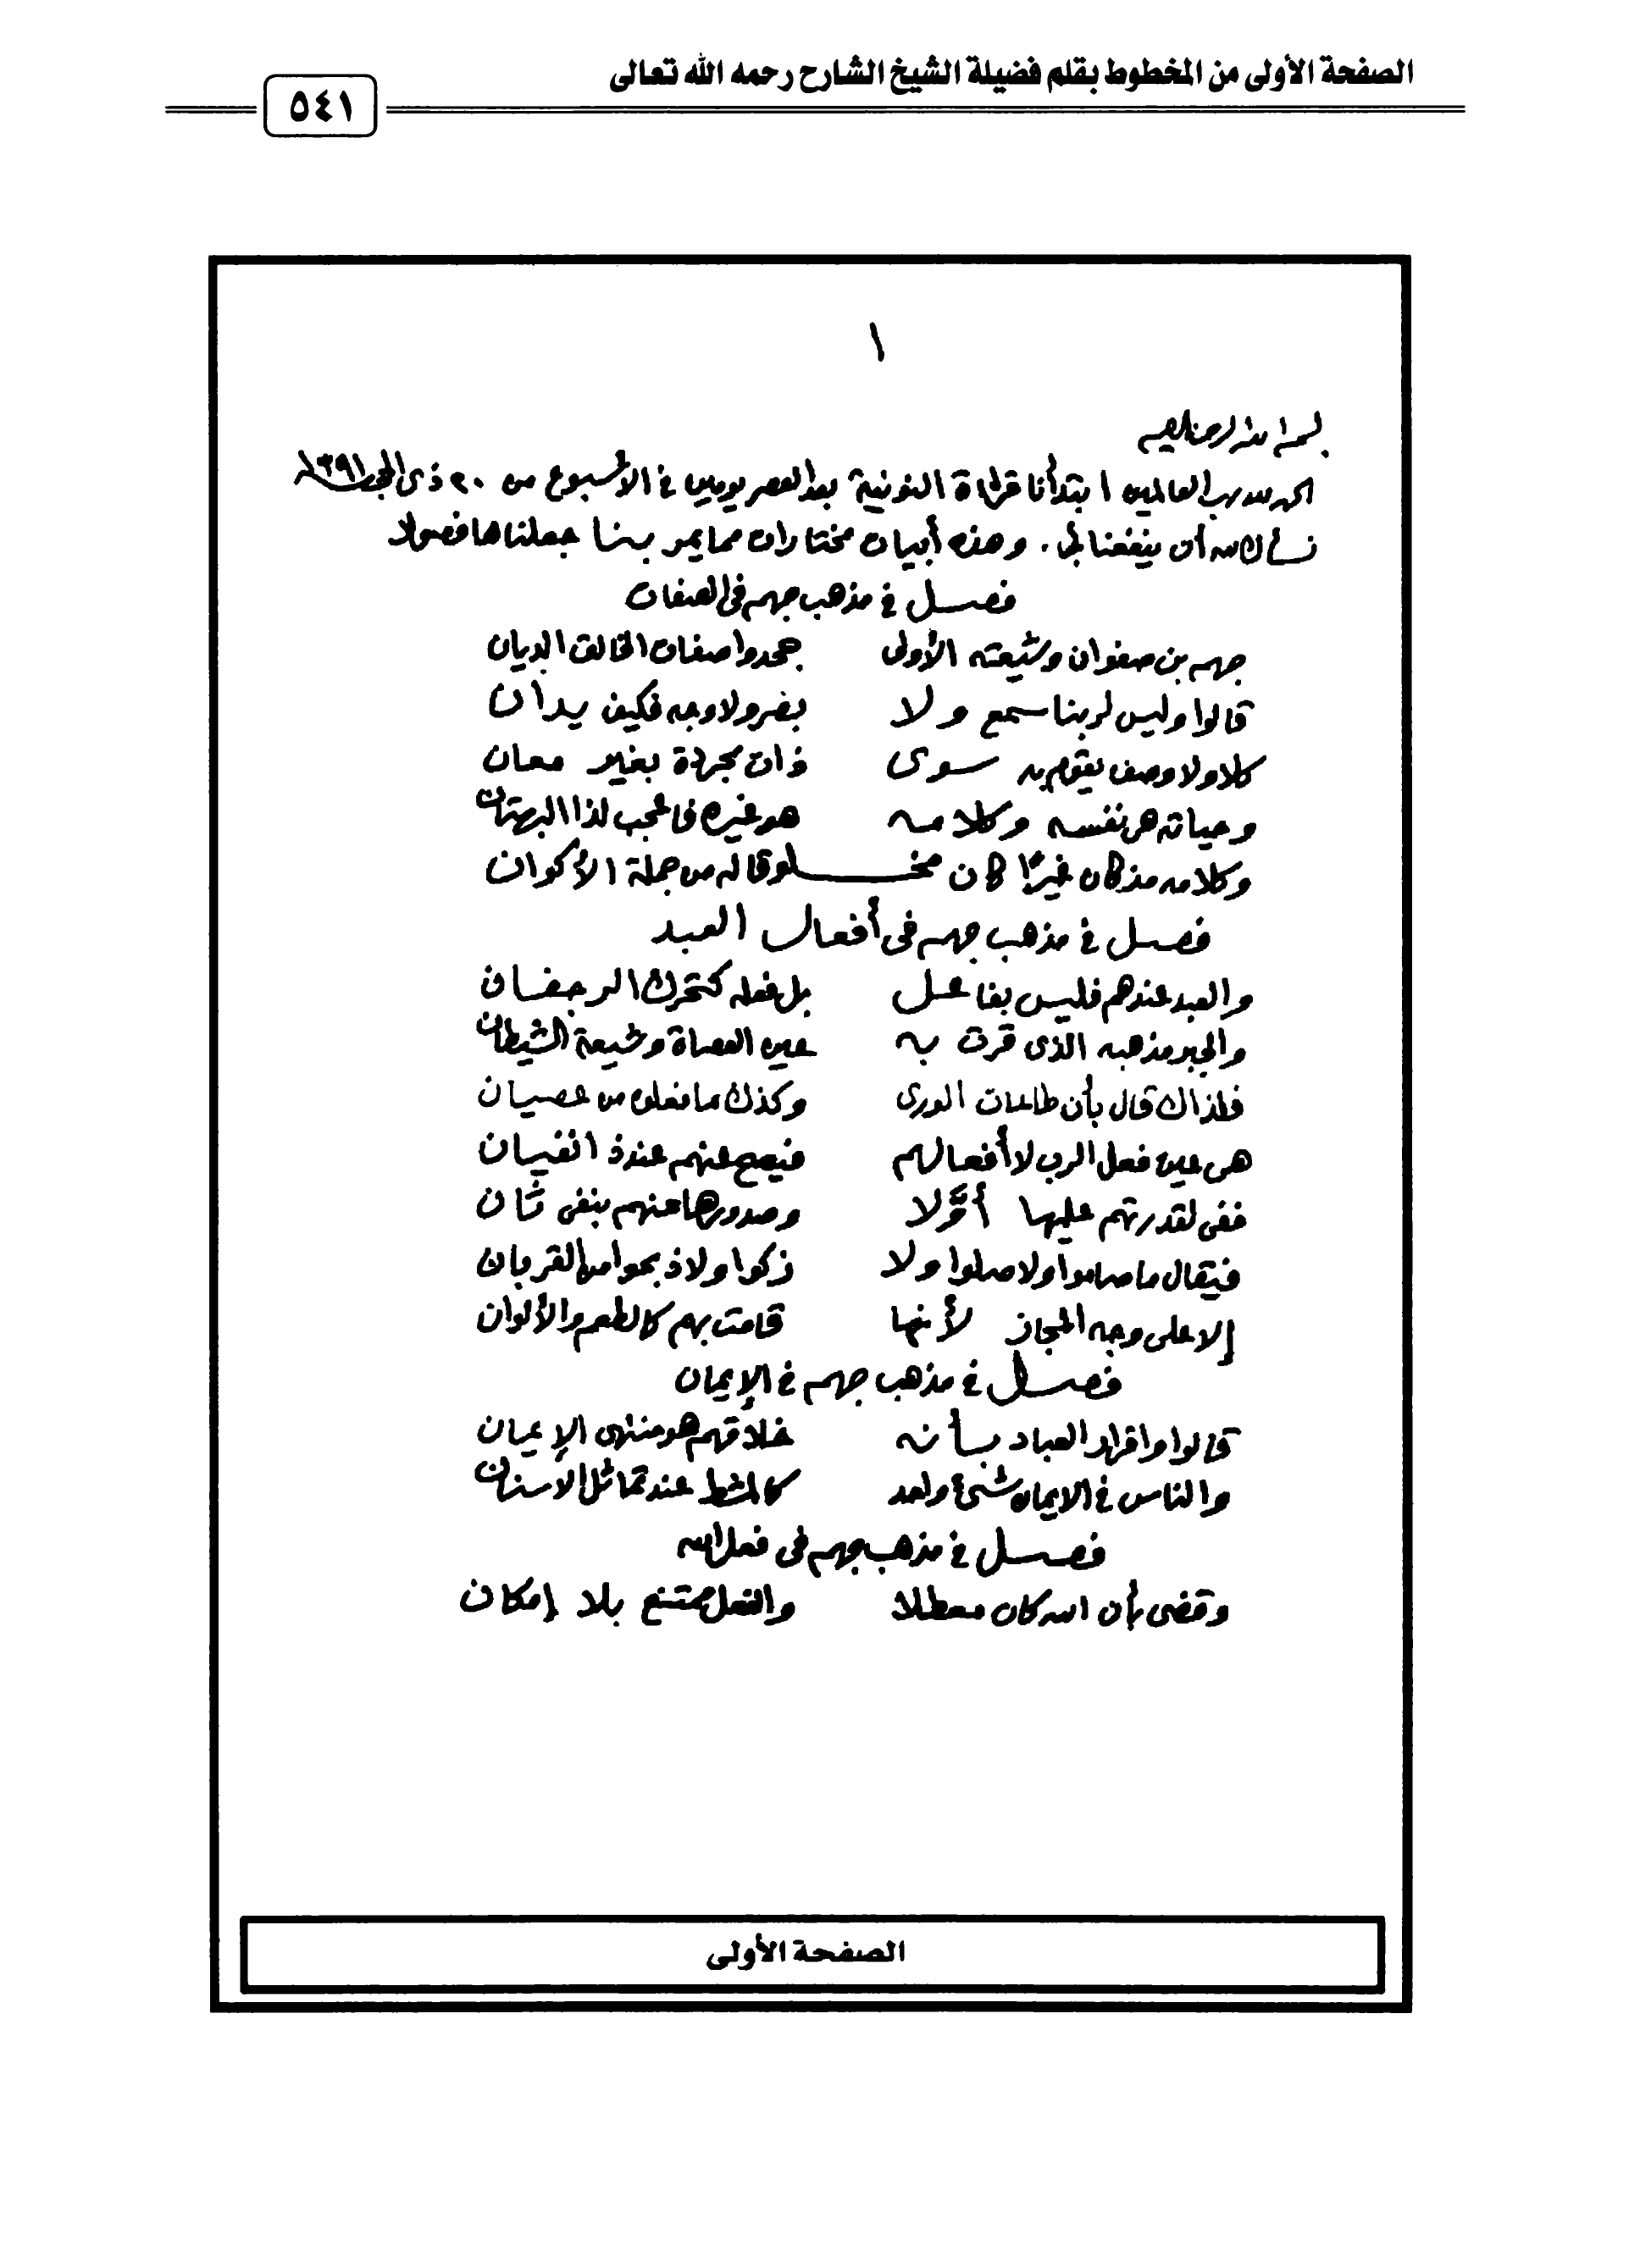 الصفحة الأولى من المخطوط بقلم فضيلة الشيخ الشارح رحمه الله تعالى
٥٤١
١
بسم الله الرحمن الرحيم
الحمد لله رب العالمين ابتدأنا قراءة النونية بعد العصر يومين في الأسبوع من ٢٠ ذي الحجة ١٣٩١هـ
نسأل الله أن ينفعنا بها. وهذه أبيات مختارات مما يمر بنا جعلناها فصولا
فصل في مذهب جهم في الصفات
جهم بن صفوان وشيعته الأولى جحدوا صفات الخالق الديان
قالوا وليس لربنا سمع ولا بصر ولا وجه فكيف يدان
كلا ولا وصف يقوم به سوى ذات مجردة بغير معان
وحياته هي نفسه وكلامه هو غيره فاعجب لذا البهتان
وكلامه مذ كان غيرًا كان مخلوقا له من جملة الأكوان
فصل في مذهب جهم في أفعال العبد
والعبد عندهم فليس بفاعل بل فعله كتحرك الرجفان
والجبر مذهبه الذي قرت به عين العصاة وشيعة الشيطان
فلذاك قال بأن طاعات الورى وكذلك ما فعلوه من عصيان
هي عين فعل الرب لا أفعالهم فيصح عنهم عند ذا نفيان
نفي لقدرتهم عليها أوَّلا وصدورها عنهم بنفي ثان
فيقال ما صاموا ولا صلوا ولا زكوا ولا ذبحوا من القربان
إلا على وجه المجاز لأنها قامت بهم كالطعم والألوان
فصل في مذهب جهم في الإيمان
قالوا وإقرار العباد بأنه خلاقهم هو منتهى الإيمان
والناس في الايمان شيء واحد كالمشط عند تماثل الأسنان
فصل في مذهب جهم في فعل الله
وقضى بأن الله كان معطلا والفعل ممتنع بلا إمكان
الصفحة الأولى